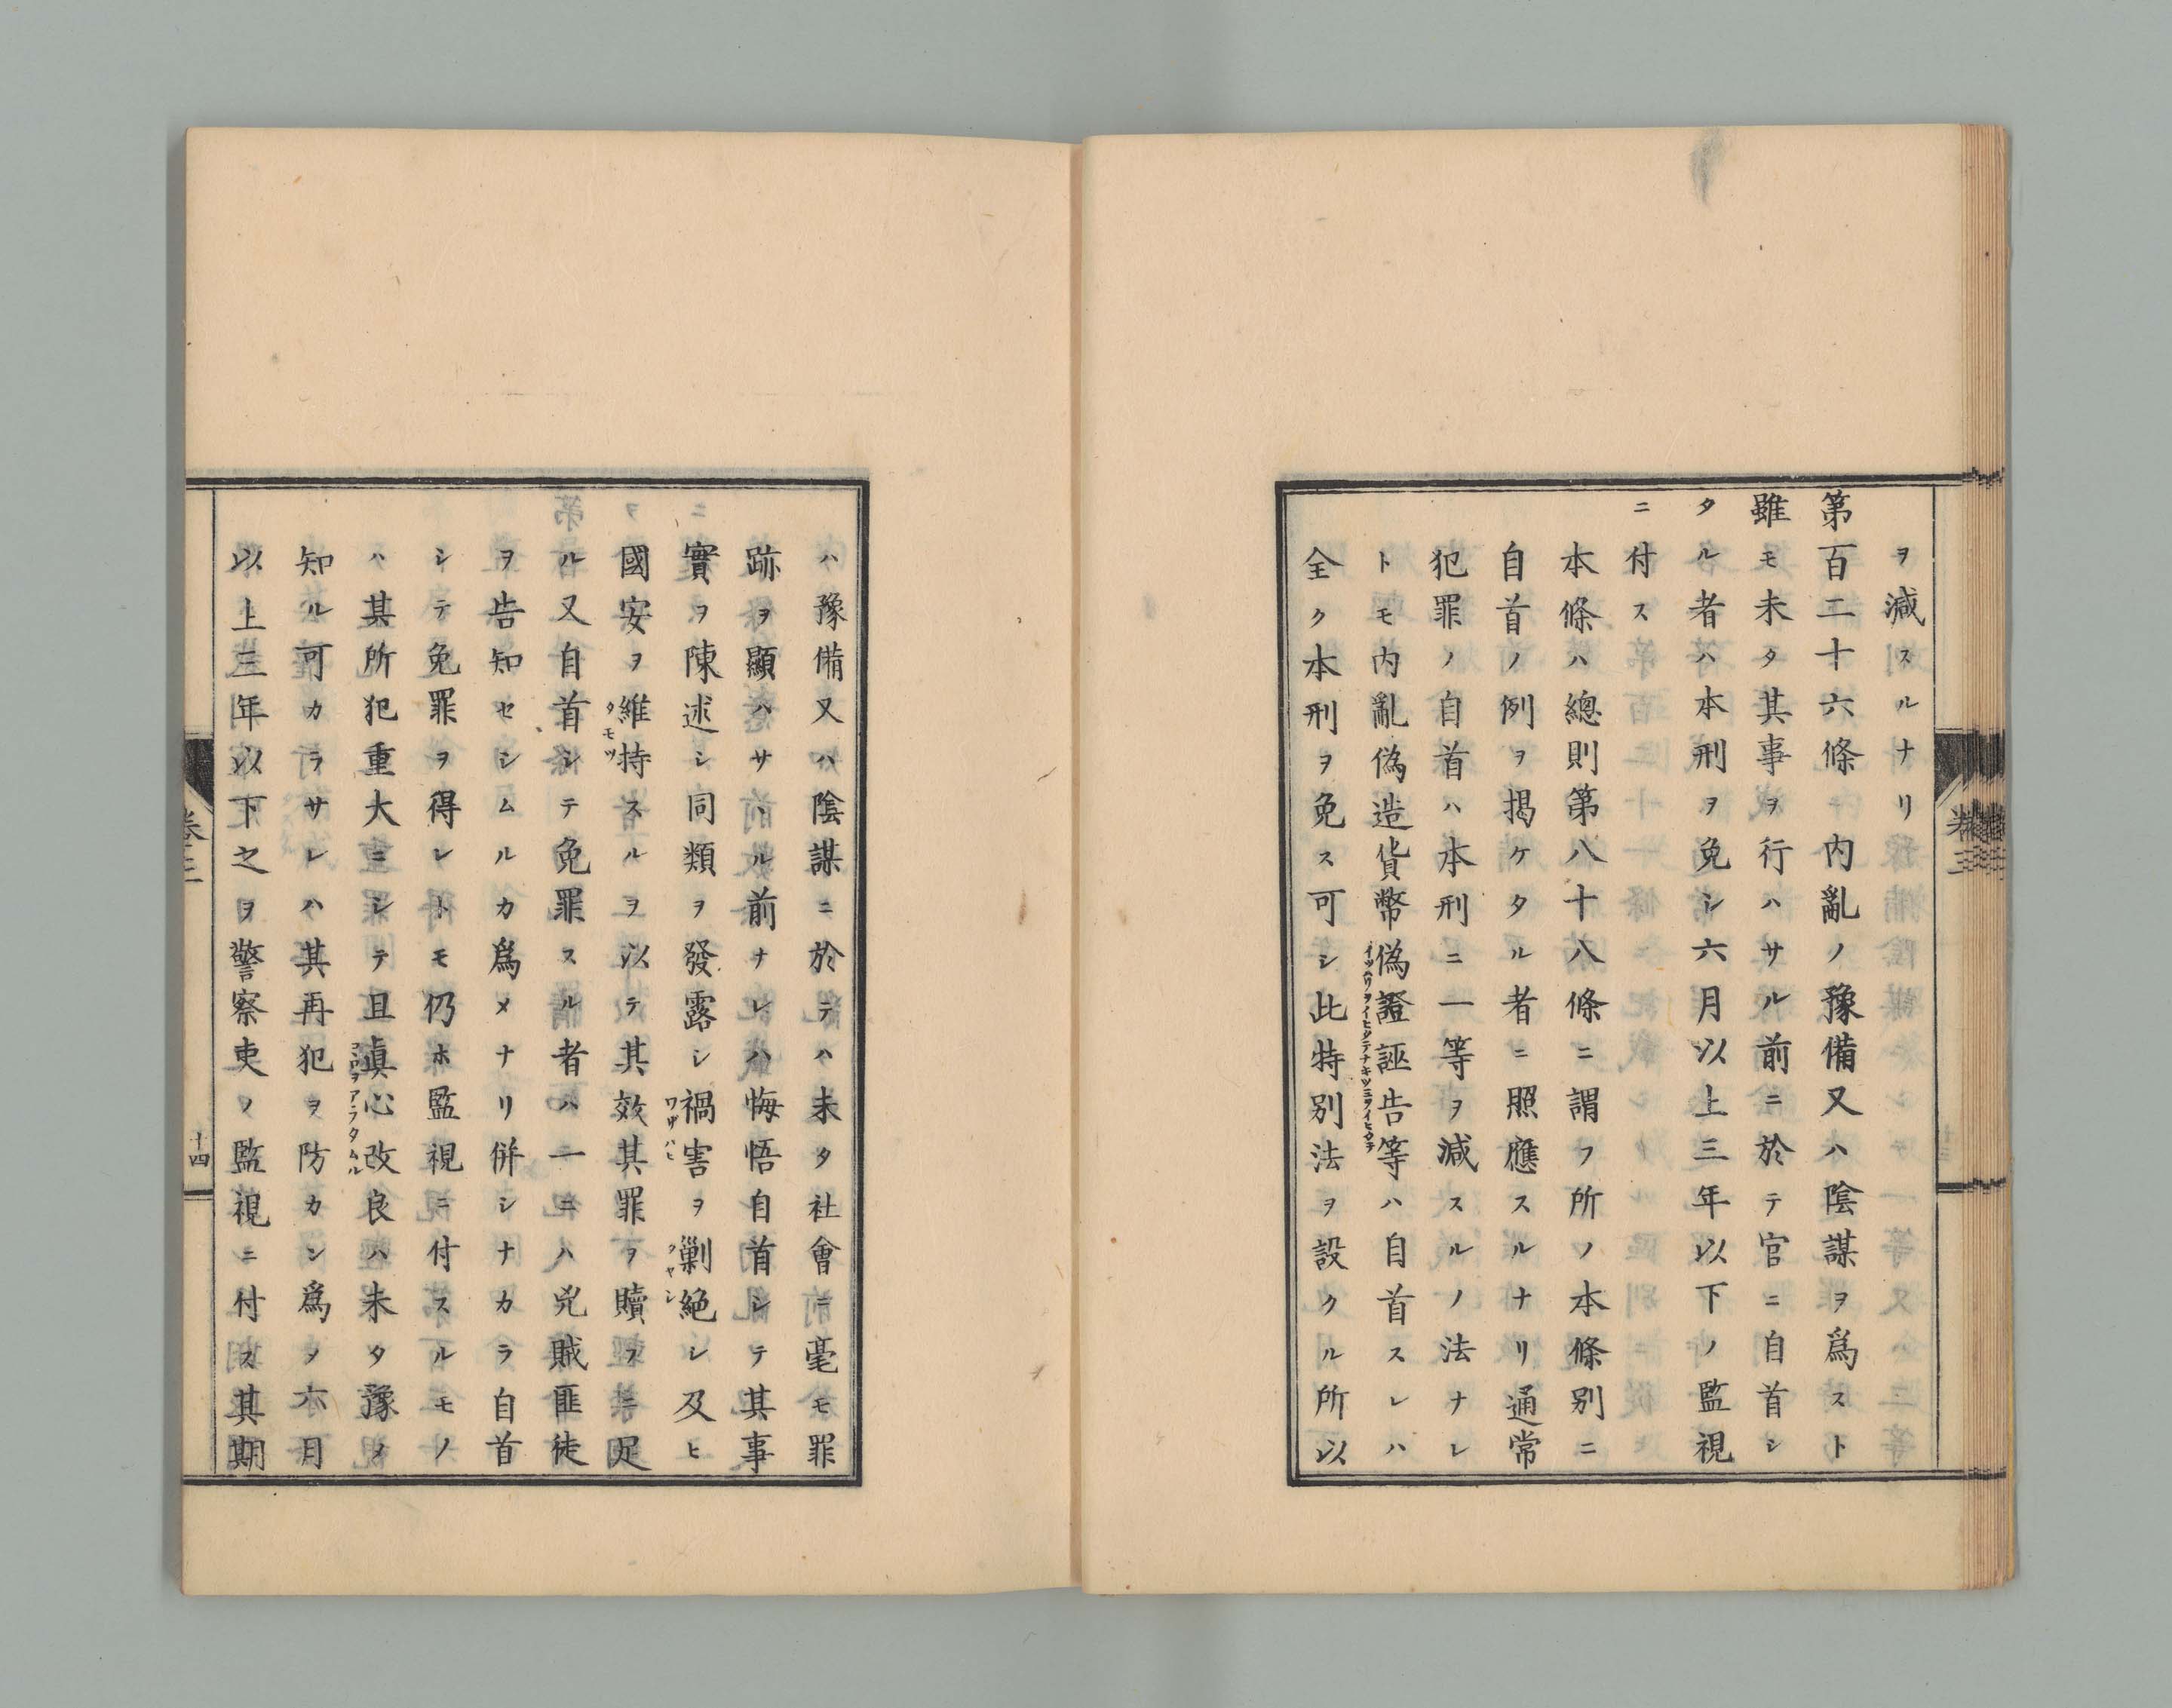 ヲ減スルナリ
第百二十六條 內亂ノ豫備又ハ陰謀ヲ爲スト
雖モ未タ其事ヲ行ハサル前ニ於テ官ニ自首シ
タル者ハ本刑ヲ免シ六月以上三年以下ノ監視
ニ付ス
本條ハ總則第八十八條ニ謂フ所ノ本條別ニ
自首ノ例ヲ揭ケタル者ニ照應スルナリ通常
犯罪ノ自首ハ本刑ニ一等ヲ減スルノ法ナレ
トモ內亂偽造貨幣偽證誣告等ハ自首スレハ
全ク本刑ヲ免ス可シ此特別法ヲ設クル所以
卷三
ハ豫備又ハ陰謀ニ於テハ未タ社會ニ毫モ罪
跡ヲ顯ハサヽル前ナレハ悔悟自首シテ其事
實ヲ陳述シ同類ヲ發露シ禍害ヲ剿絕シ及ヒ
ワザハヒ
クヤシ
國安ヲ維持スルヲ以テ其效其罪ヲ贖フニ足
タモツ
ル又自首シテ免罪スル者ハ一ニハ兇賊匪徒
ヲ告知セシムルカ爲メナリ併シナカラ自首
シテ免罪ヲ得レトモ仍ホ監視ニ付スルモノ
ハ其所犯重大ニシテ且眞心改良ハ未タ豫メ
コヽロヲアラタムル
知ル可カラサレハ其再犯ヲ防カン爲メ六月
以上三年以下之ヲ警察吏ノ監視ニ付ス其期
卷三
十四